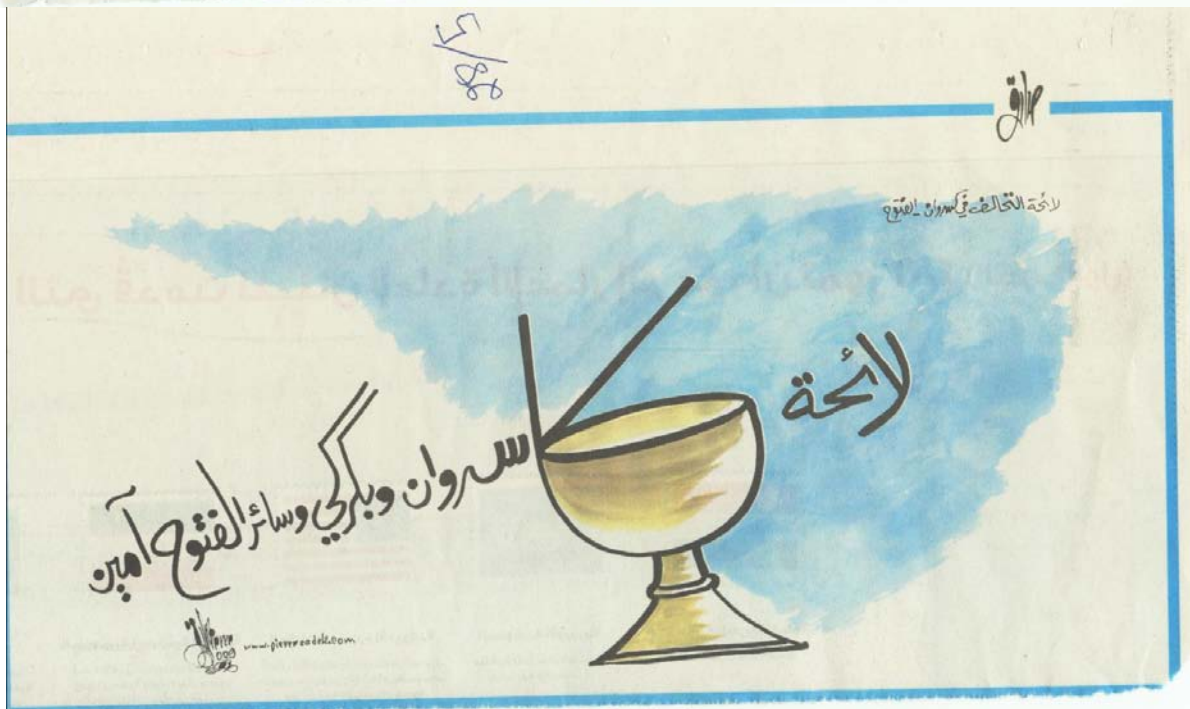 صادق
لائحة التحالف في كسروان - الفتوح
لائحة
كاسروان وبكركي وسائر الفتوح آمين
www.pierresadek.com